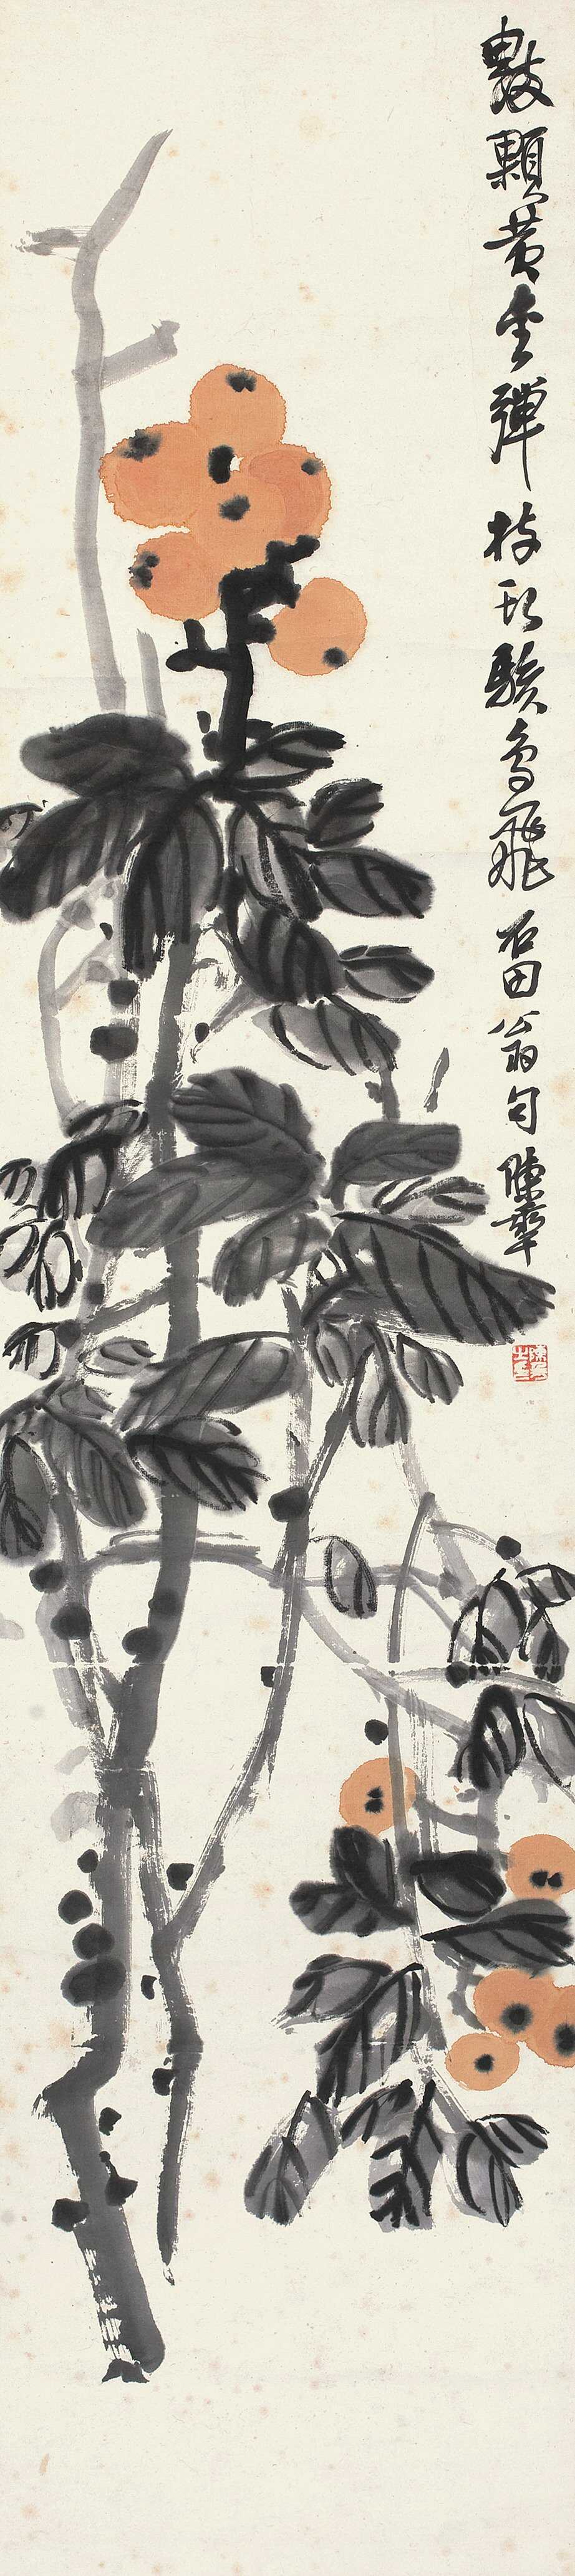 數顆黃金彈枝頭駭鳥飛石田翁句陳